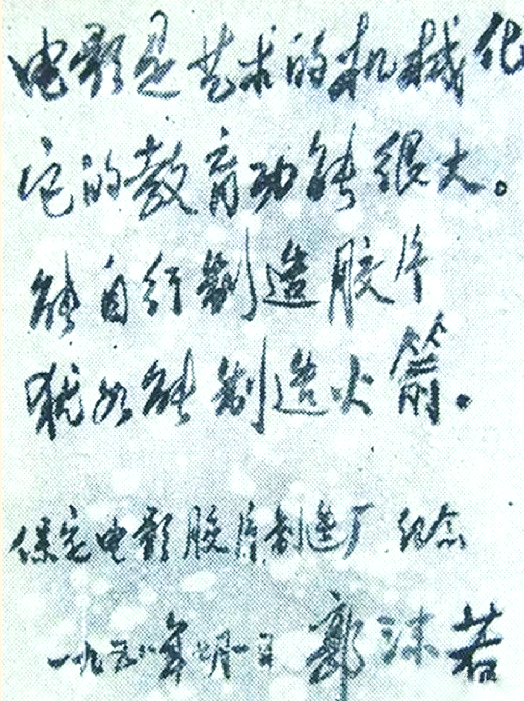 电影是艺术的机械化
它的教育功能很大。
能自行制造胶片
犹如能制造火箭。
保定电影胶片制造厂 纪念
一九五八年七月一日 郭沫若